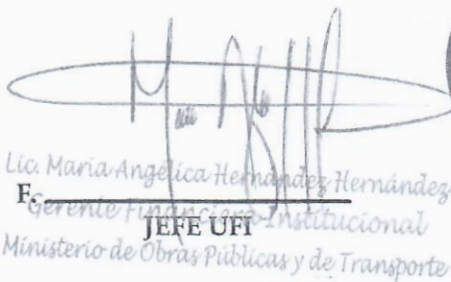 Lic. María Angélica Hernández Hernández
F.
Gerente Financiera Institucional
JEFE UFI
Ministerio de Obras Públicas y de Transporte